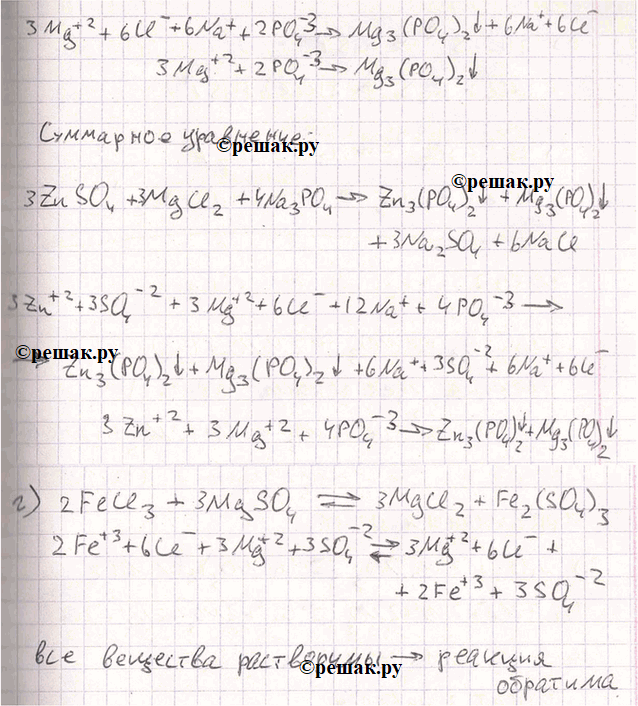 3Mg⁺² + 6Cl⁻ + 6Na⁺ + 2PO₄⁻³ → Mg₃(PO₄)₂↓ + 6Na⁺ + 6Cl⁻
3Mg⁺² + 2PO₄⁻³ → Mg₃(PO₄)₂↓
Суммарное уравнение:
©решак.ру
©решак.ру
3ZnSO₄ + 3MgCl₂ + 4Na₃PO₄ → Zn₃(PO₄)₂↓ + Mg₃(PO₄)₂↓
+ 3Na₂SO₄ + 6NaCl
3Zn⁺² + 3SO₄⁻² + 3Mg⁺² + 6Cl⁻ + 12Na⁺ + 4PO₄⁻³ →
©решак.ру
→ Zn₃(PO₄)₂↓ + Mg₃(PO₄)₂↓ + 6Na⁺ + 3SO₄⁻² + 6Na⁺ + 6Cl⁻
3Zn⁺² + 3Mg⁺² + 4PO₄⁻³ → Zn₃(PO₄)₂↓ + Mg₃(PO₄)₂↓
г) 2FeCl₃ + 3MgSO₄ ⇌ 3MgCl₂ + Fe₂(SO₄)₃
2Fe⁺³ + 6Cl⁻ + 3Mg⁺² + 3SO₄⁻² ⇌ 3Mg⁺² + 6Cl⁻ +
+ 2Fe⁺³ + 3SO₄⁻²
все вещества растворимы → реакция
©решак.ру
обратима